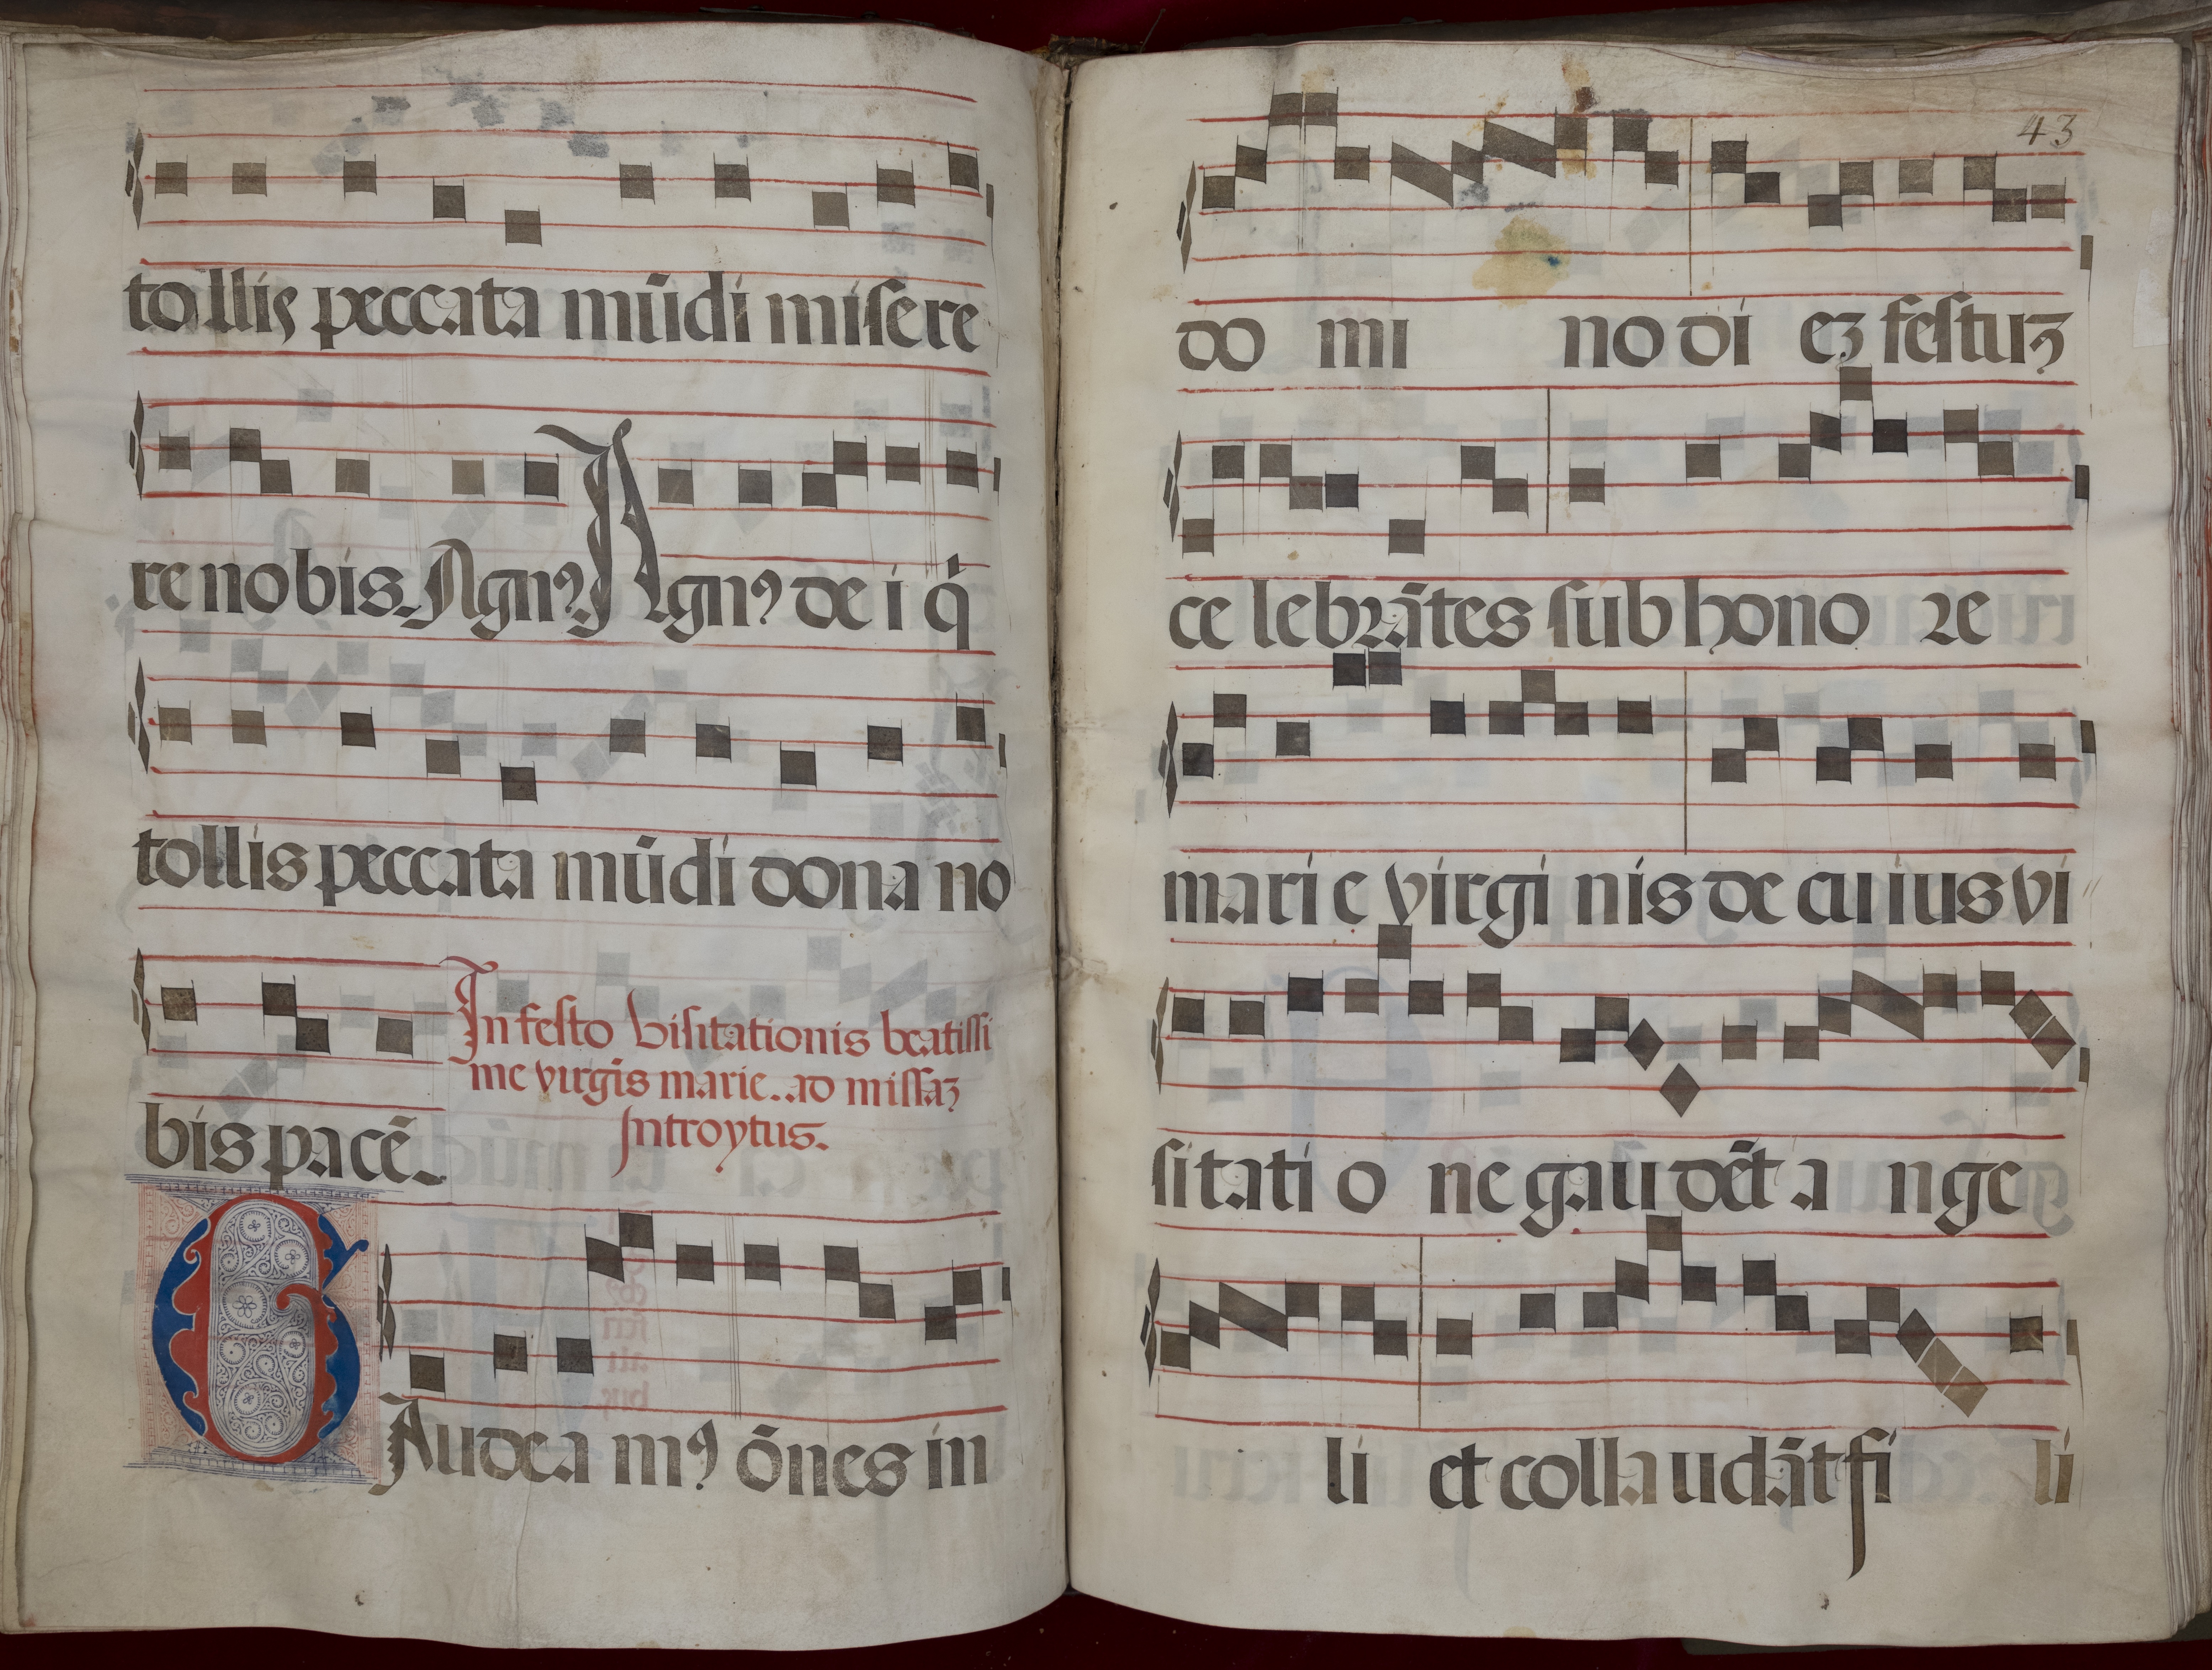 tollis peccata mūdi misere
re nobis. Agnꝰ. Agnꝰ de i q̇
tollis peccata mūdi dona no
bis pacē.
In festo visitationis beatissi
me virgīs marie. ad missaꝫ
Introytus.
GAudea mꝰ ōnes in
43
do mi no di eꝫ festuꝫ
ce lebrātes sub hono re
mari e virgi nis de cuius vi
sitati o ne gaudēt a nge
li et collaudāt fi li